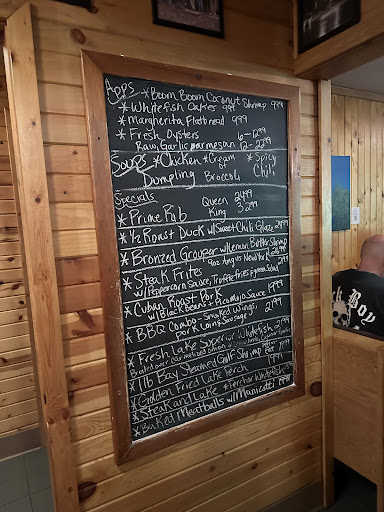 Apps * Boom Boom Coconut Shrimp 999
* Whitefish Cakes 999
* Margherita Flatbread 999
* Fresh Oysters 6-1299
Raw, Garlic parmesan 12-2299
Soups * Chicken * Cream of * Spicy
Dumpling Broccoli Chili
Specials Queen 2499
* Prime Rib King 3299
* 1/2 Roast Duck w/ Sweet Chili Glaze 2799
* Bronzed Grouper w/ Lemon Butter Shrimp
* Steak Frites 9oz Angus New York
w/ Peppercorn Sauce, Truffle Fries & green Salad
* Cuban Roast Pork 1999
w/ Black Beans & Picamojo Sauce
* BBQ Combo - Smoked Wings, 2199
Pork Loin & Sausage
* Fresh Lake Superior Whitefish
* 1 lb Bay Steamed Gulf Shrimp
* Golden Fried Lake Perch 1999
* Steak and Lake
* Baked Meatballs w/ Manicotti
Boy